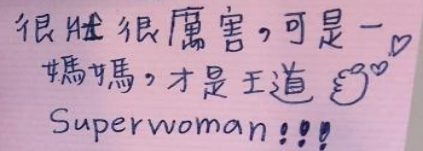 很壯很厲害，可是一
媽媽，才是王道
Superwoman!!!